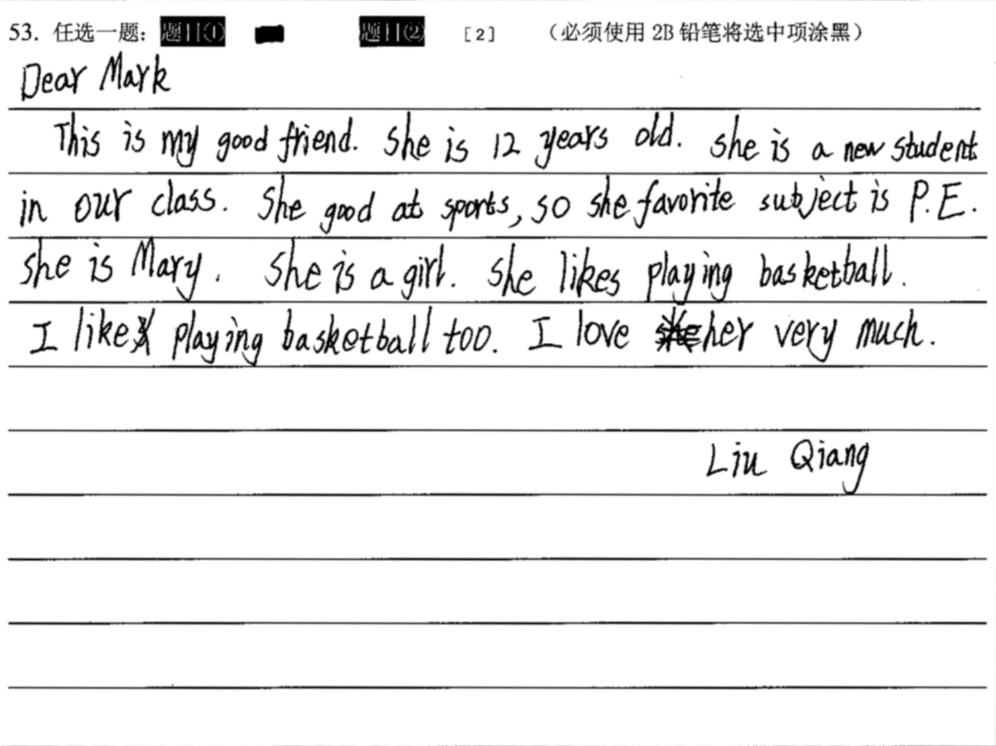 53. 任选一题: 题目① 题目② [2] (必须使用 2B 铅笔将选中项涂黑)
Dear Mark
This is my good friend. She is 12 years old. She is a new student
in our class. She good at sports, so she favorite subject is P.E.
She is Mary. She is a girl. She likes playing basketball.
I like playing basketball too. I love her very much.
Liu Qiang